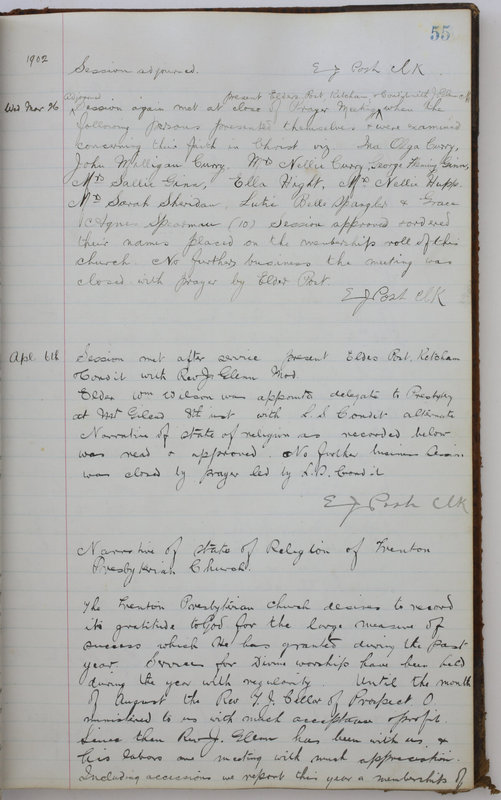 55
1902
Session adjourned. E J Post Clk
Adjourned present Elders Post, Ketcham & Condit with J Glenn M
Wed Mar 26 Session again met at close of Prayer Meeting when the
following persons presented themselves & were examined
concerning their faith in Christ viz Ina Olga Curry,
John Milligan Curry. Mrs Nellie Curry, George Fleming Ginn,
Mrs Sallie Ginn, Ella Hight, Mrs Nellie Hupp.
Mrs Sarah Sheridan, Lutie Belle Spangler & Grace
Agnes Spearman (10) Session approved & ordered
their names placed on the membership roll of this
church. No further business the meeting was
closed with prayer by Elder Post.
E J Post Clk
Apl 6th Session met after service present Elders Post. Ketcham
Condit with Rev J Glenn Mod.
Elder Wm Wilson was appointed delegate to Presbtry
at Mt Gilead 8th inst with L. S Condit alternate
Narrative of state of religion as recorded below
was read & approved. No further business Session
was closed by prayer led by L. S. Condit
E J Post Clk
Narrative of State of Religion of Trenton
Presbyterian Church.
The Trenton Presbyterian church desires to record
its gratitude to God for the large measure of
success which He has granted during the past
year. Services for Divine worship have been held
during the year with regularity. Until the month
of August the Rev T. J. Cellar of Prospect, O.
ministered to us with much acceptance & profit
Since then Rev J. Glenn has been with us, &
his labors are meeting with much appreciation.
Including accessions we report this year a membership of